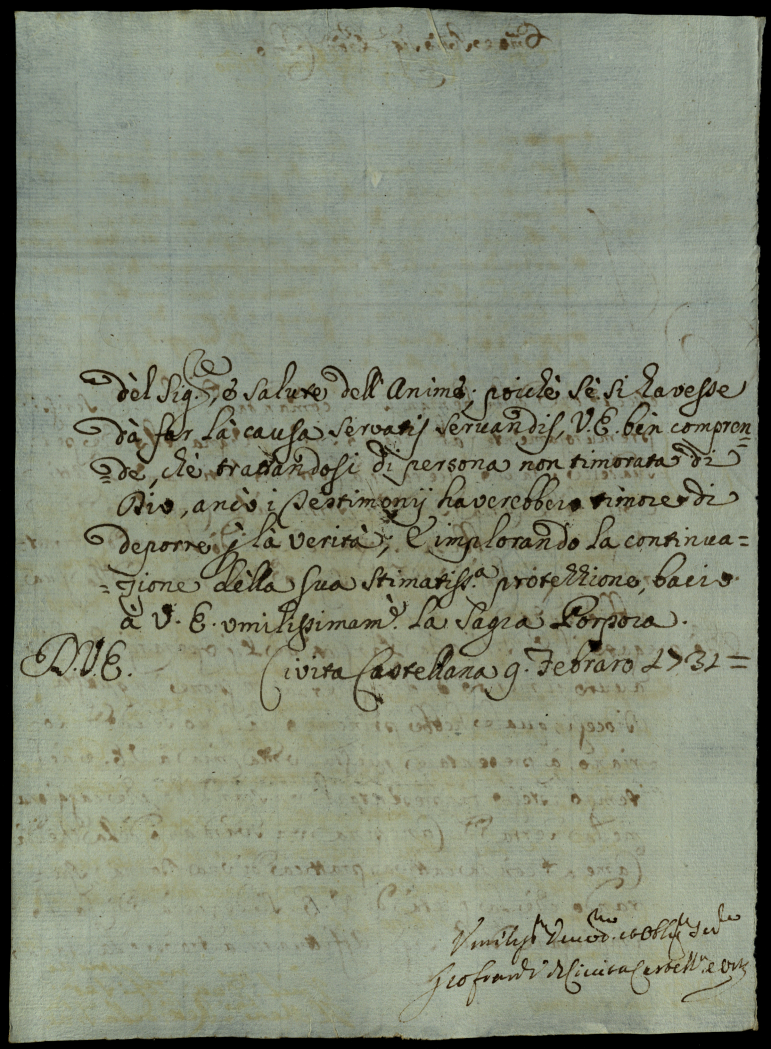 del Sig.re, e salute dell'Anime; poichè sè si havesse
dà far là causa servatis servandis, V.E. ben compren=
=de, chè trattandosi di persona non timorata di
Dio, anco i Testimonij haverebbero timore di
deporre là verità; E implorando la continua=
=zione della sua stimatiss.a protezzione, bacio
à V. E. umilissimam.e la Sagra Porpora.
D.V.E. Civita Castellana 9. Febraro 1731=
Umiliss.o Devot.mo et Obblig.mo Ser.re
Civita Castell.na e Orte